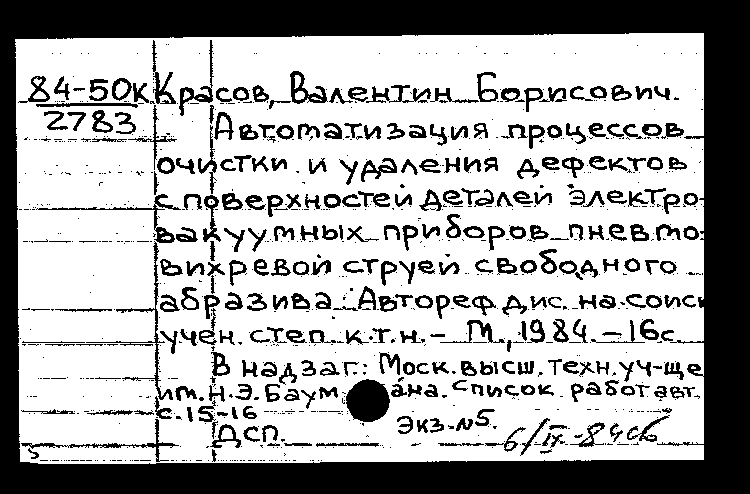 84-50к Красов, Валентин Борисович.
2783
Автоматизация процессов
очистки и удаления дефектов
с поверхностей деталей электро-
вакуумных приборов пневмо-
вихревой струей свободного
абразива: Автореф дис. на соиск
учен. степ. к.т.н. - М., 1984. - 16с.
В надзаг: Моск. высш. техн. уч-ще
им. Н.Э. Баумана. Список работ авт.
с. 15-16
ДСП. Экз. №5.
6/IV-84